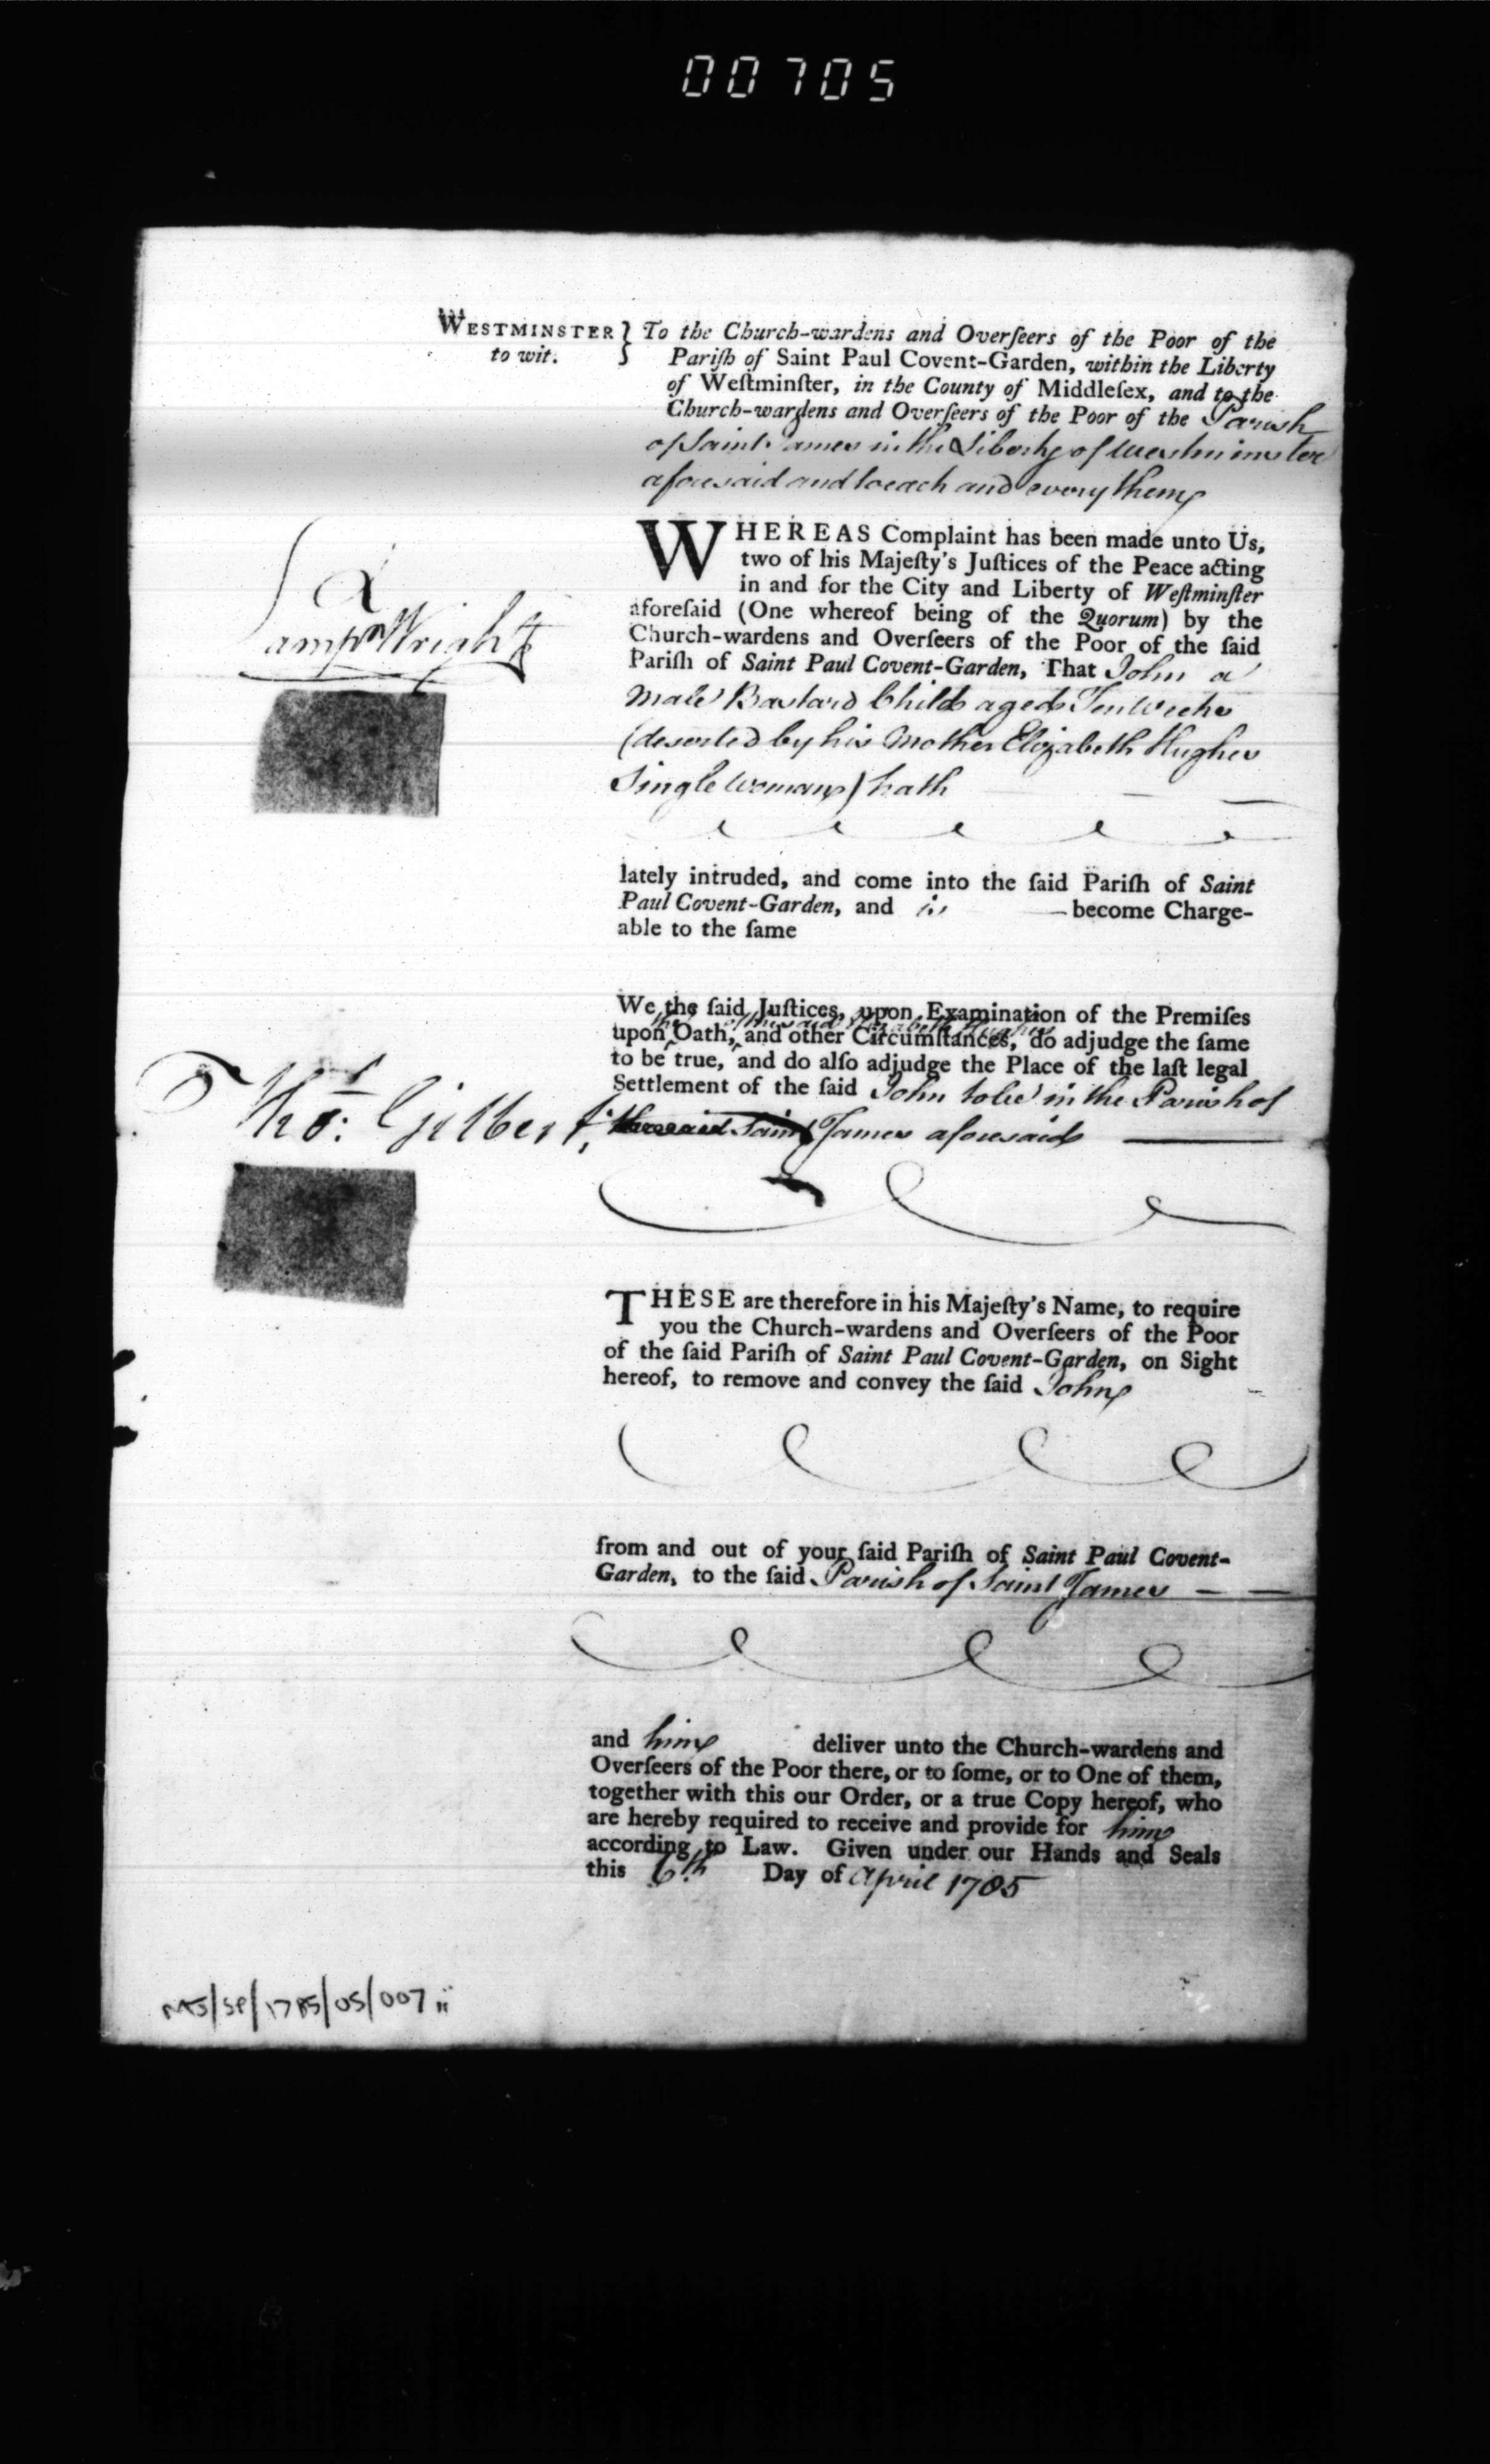 00705
WESTMINSTER } To the Church-wardens and Overſeers of the Poor of the
to wit. Pariſh of Saint Paul Covent-Garden, within the Liberty
of Weſtminſter, in the County of Middleſex, and to the
Church-wardens and Overſeers of the Poor of the Parish
of Saint James in the Liberty of Westminster
aforesaid and to each and every them
WHEREAS Complaint has been made unto Us,
two of his Majeſty's Juſtices of the Peace acting
in and for the City and Liberty of Weſtminſter
aforeſaid (One whereof being of the Quorum) by the
Church-wardens and Overſeers of the Poor of the ſaid
Pariſh of Saint Paul Covent-Garden, That John a
Male Bastard Child aged Ten Weeks
(deserted by his Mother Elizabeth Hughes
Single Woman) hath
Wright
lately intruded, and come into the ſaid Pariſh of Saint
Paul Covent-Garden, and is become Charge-
able to the ſame
We the ſaid Juſtices, upon Examination of the Premiſes
the of the said Elizabeth Hughes
upon Oath, and other Circumſtances, do adjudge the ſame
to be true, and do alſo adjudge the Place of the laſt legal
Settlement of the ſaid John to be in the Parish of
Saint James aforesaid
Thos: Gilbert
THESE are therefore in his Majeſty's Name, to require
you the Church-wardens and Overſeers of the Poor
of the ſaid Pariſh of Saint Paul Covent-Garden, on Sight
hereof, to remove and convey the ſaid John
from and out of your ſaid Pariſh of Saint Paul Covent-
Garden, to the ſaid Parish of Saint James
and him deliver unto the Church-wardens and
Overſeers of the Poor there, or to ſome, or to One of them,
together with this our Order, or a true Copy hereof, who
are hereby required to receive and provide for him
according to Law. Given under our Hands and Seals
this 6th Day of April 1785
MJ/SP/1785/05/007 ii